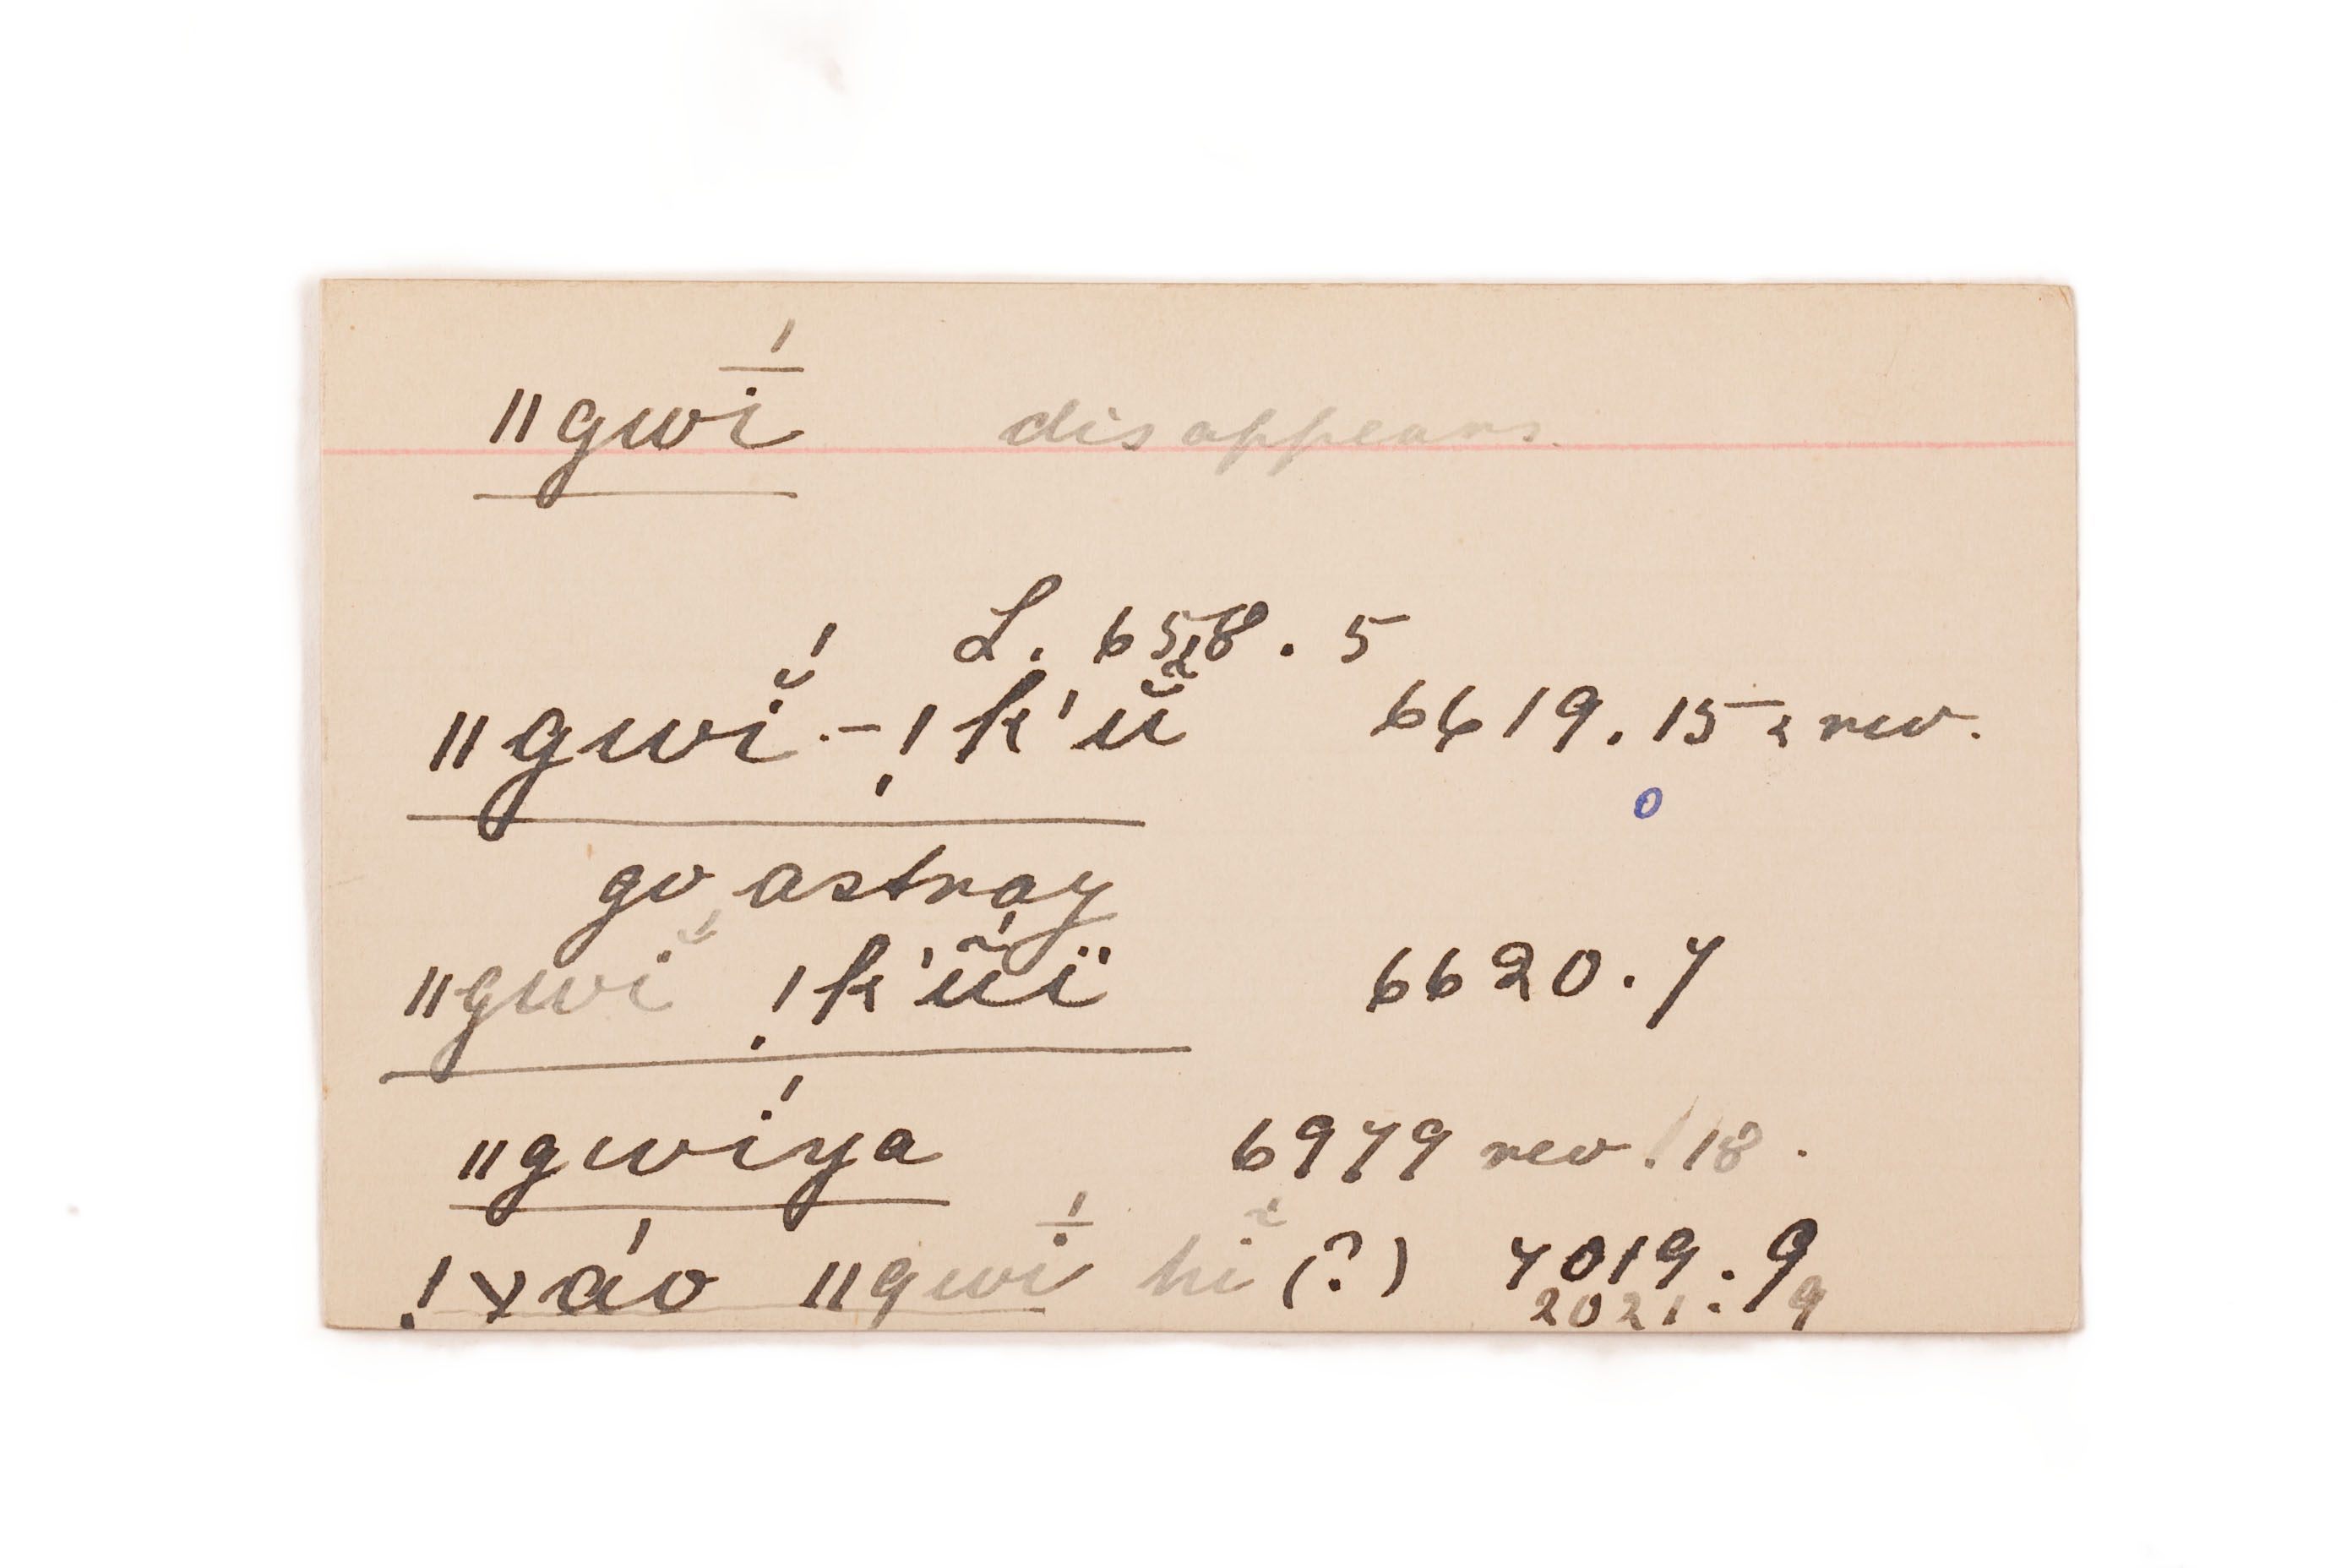 ǁgwī́ disappears.
L. 6518.5
ǁgwĭ́-!k'ŭ̃ 6619.15 & rev.
o
go astray
ǁgwĭ́ !k'ṹï 6620.7
ǁgwíya 6979 rev./18.
!xáo ǁgwī́ hĩ (?) 7019:9
2021:9